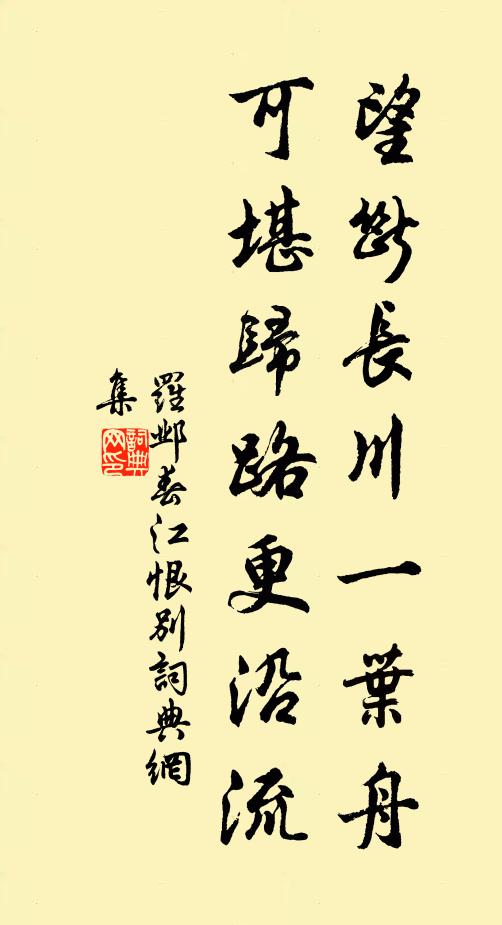 望斷長川一葉舟
可堪歸路更沿流
羅鄴春江恨別詞典網
集
詞典網印